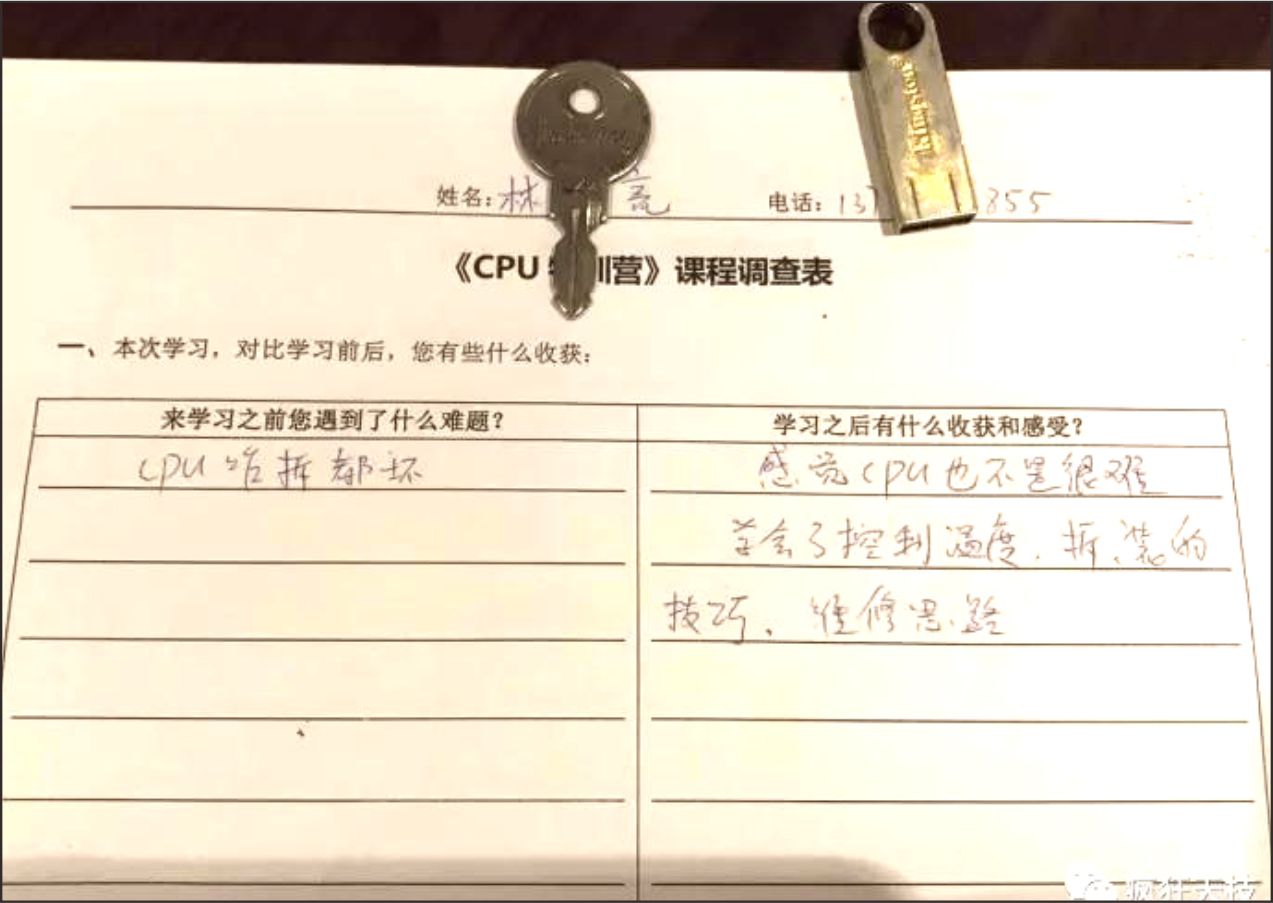 Kingston
姓名：林 亮 电话：13 855
《CPU 训营》课程调查表
一、本次学习，对比学习前后，您有些什么收获：
来学习之前您遇到了什么难题？ 学习之后有什么收获和感受？
CPU 拆都坏 感觉CPU也不是很难
学会了控制温度、拆、装的
技巧、维修思路